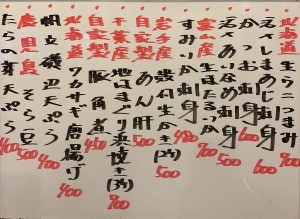 北海道生らっつまみ 600
かつお刺身 600
えんしまめじ刺身 700
えぞあいなめ刺身 500
富山産生ほたるいか 700
すみいか刺身 480
岩手産岩付生かき(2ケ) 500
自家製あん肝 500
千葉産地はまぐり浜焼き(3ケ) 700
自家製豚角煮 450
北海道ワカサギ磨揚げ 400
明立磯辺天ぷら 400
鹿児島そら豆 500
たらの芽天ぷら 400